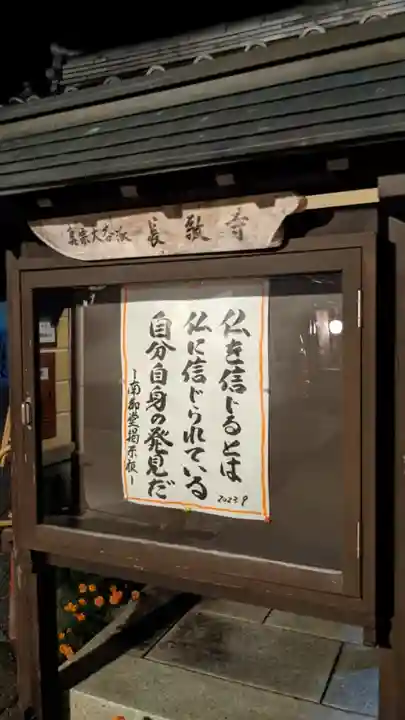 真宗大谷派 長敬寺
仏を信じるとは
仏に信じられている
自分自身の発見だ
～南御堂掲示板～
2023.9